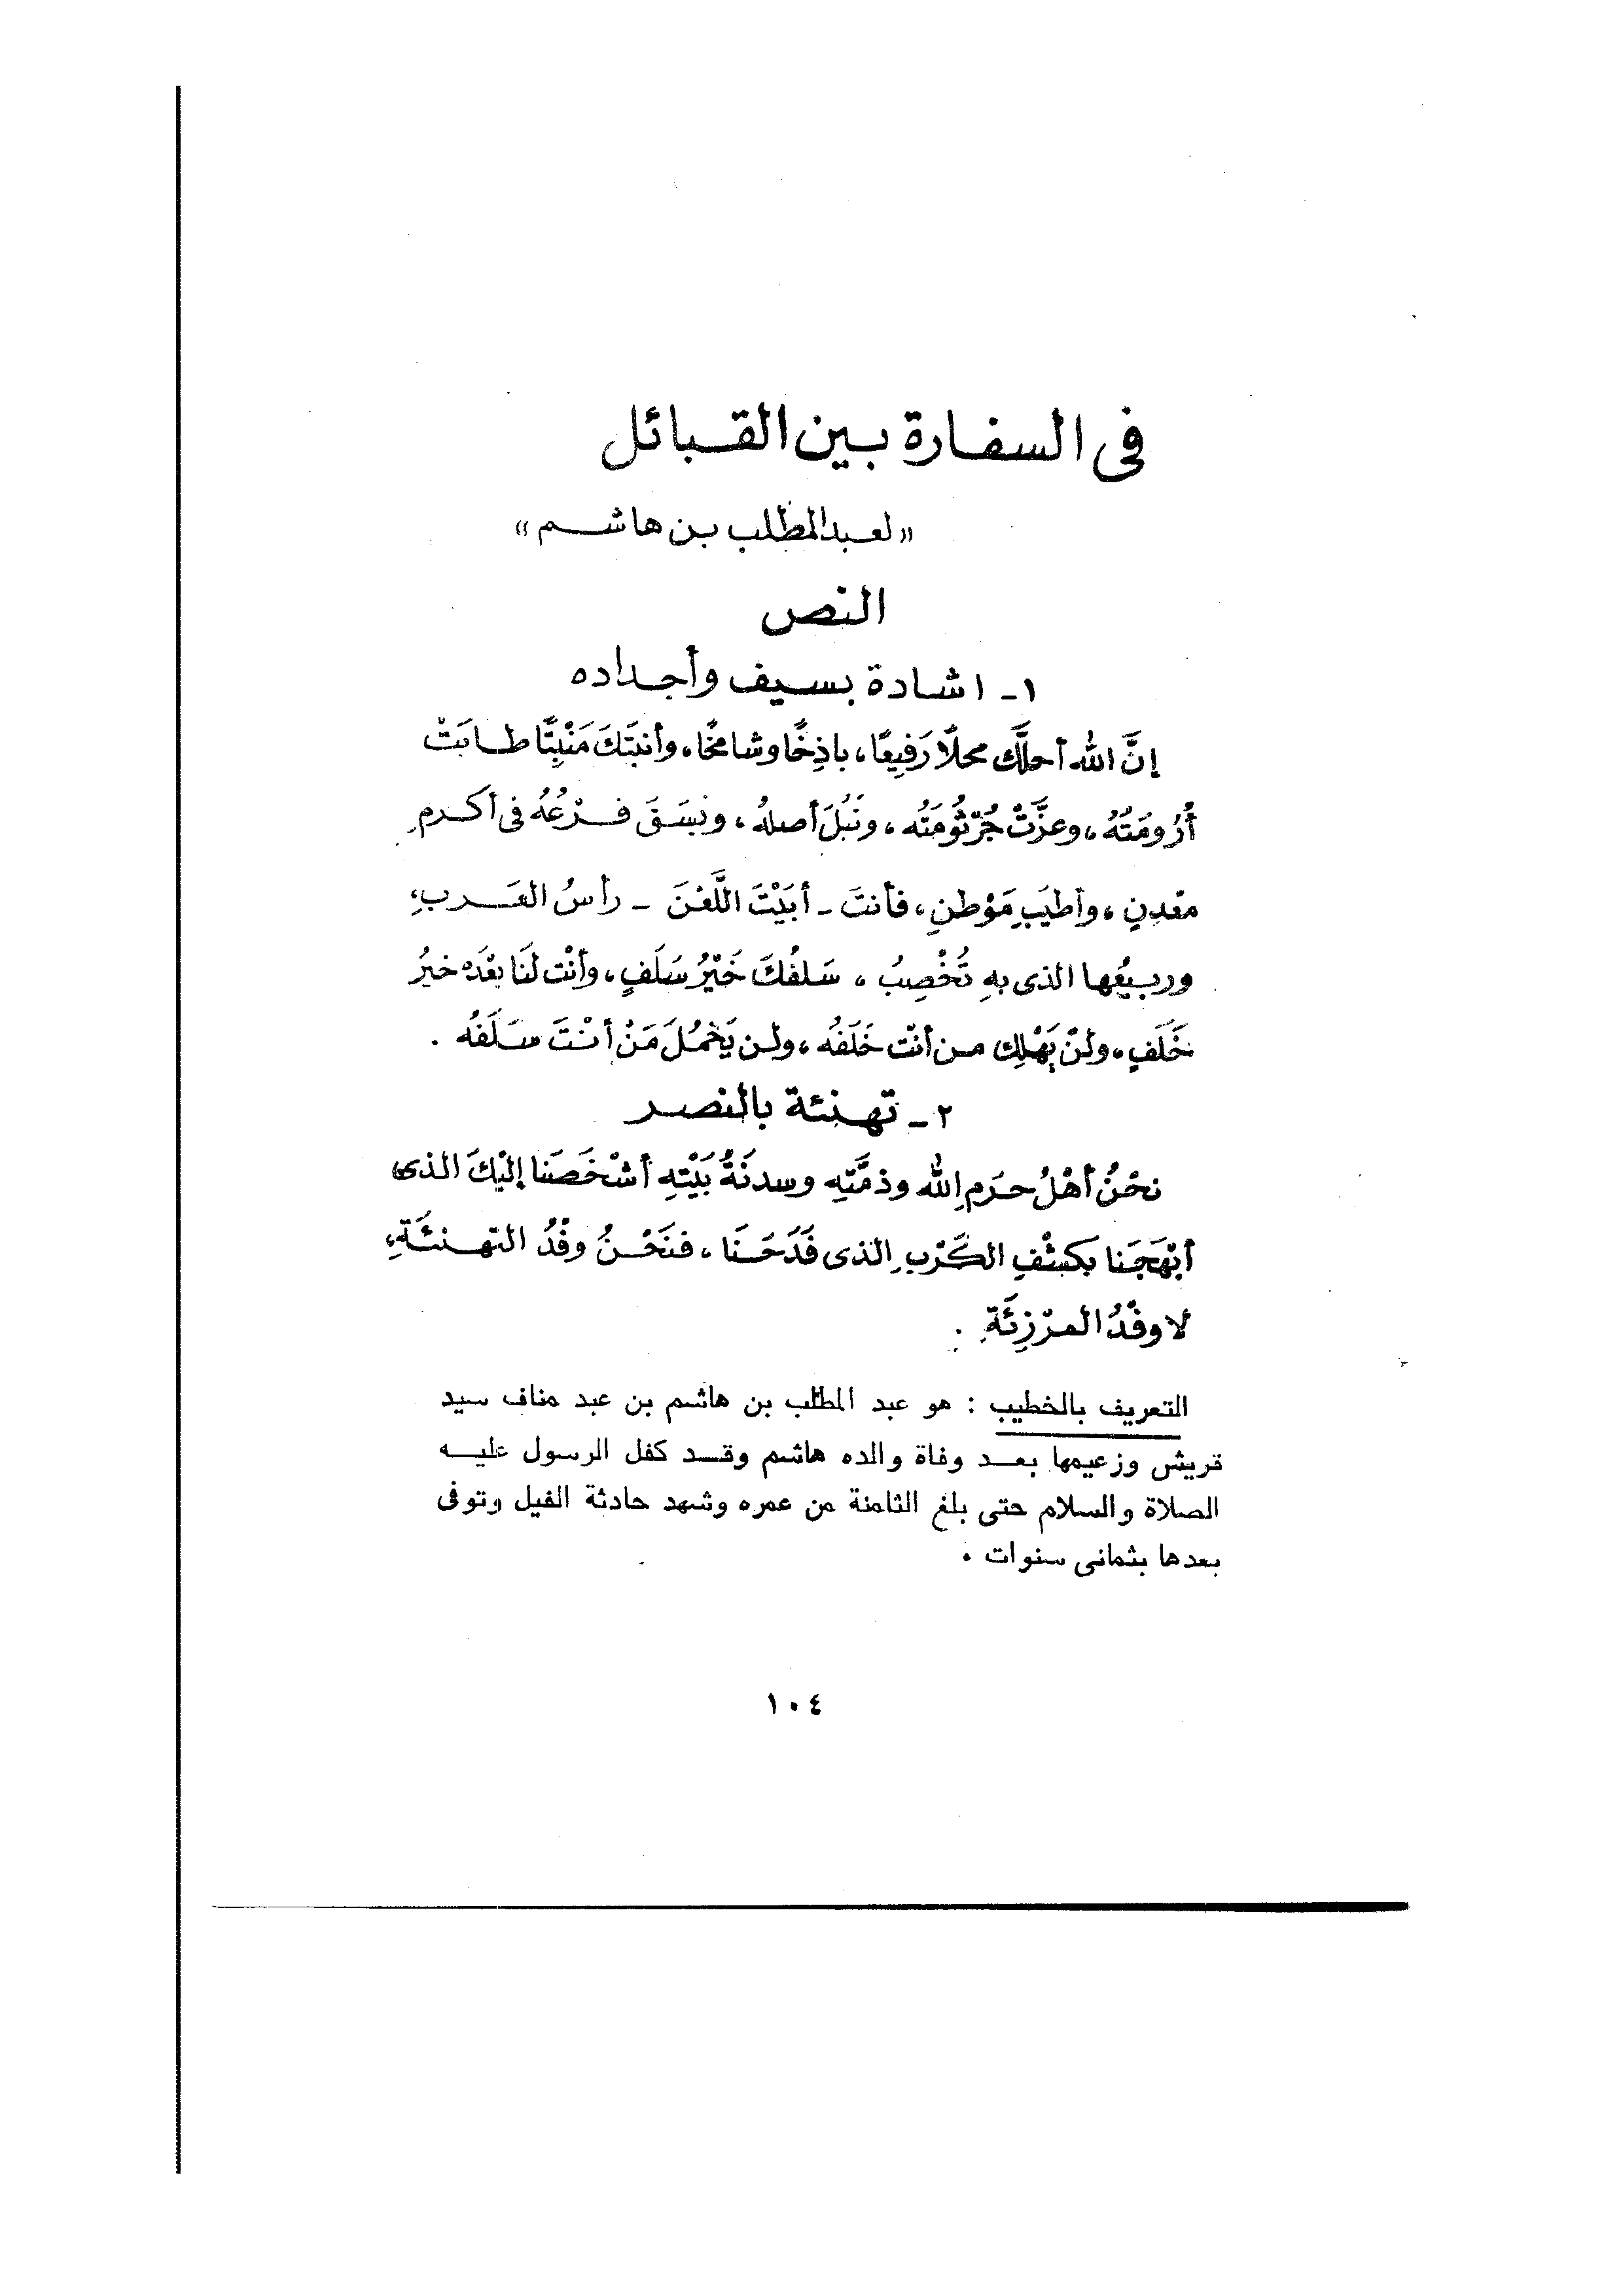 فى السفارة بين القبائل
«لعبد المطلب بن هاشم»
النص
١ـ اشادة بسيف وأجداده
إنَّ الله أحلَّك محلًا رَفِيعًا، باذِخًا وشامخًا، وأنبتَكَ مَنْبِتًا طابَتْ
أرُومَتُهُ، وعزَّتْ جُرْثُومَتُه، ونَبُلَ أصلهُ، وبَسَقَ فرْعُهُ فى أكرمِ
معْدِنٍ، وأطيَبِ مَوْطنٍ، فأنتَ ـ أبَيْتَ اللَّعْنَ ـ رأسُ العَربِ،
وربيعُها الذى بهِ تُخْصِبُ، سَلفُكَ خَيْرُ سَلَفٍ، وأنْت لَنَا بعْدَه خيرُ
خَلَفٍ، ولنْ يَهْلِك من أنْت خَلَفُه، ولن يَخمُلَ مَنْ أنْتَ سَلَفُه .
٢ـ تهنئة بالنصر
نحْنُ أهْلُ حرَمِ الله وذمَّتِه وسدنَةُ بَيْتِهِ أشْخَصَنا إليْكَ الذى
أبْهَجَنا بكشْفِ الكَرْبِ الذى فَدَحَنَا، فنَحْنُ وفْدُ التهنئَةِ،
لا وفْدُ المرْزِئَةِ .
التعريف بالخطيب : هو عبد المطلب بن هاشم بن عبد مناف سيد
قريش وزعيمها بعد وفاة والده هاشم وقد كفل الرسول عليه
الصلاة والسلام حتى بلغ الثامنة من عمره وشهد حادثة الفيل وتوفى
بعدها بثمانى سنوات .
١٠٤